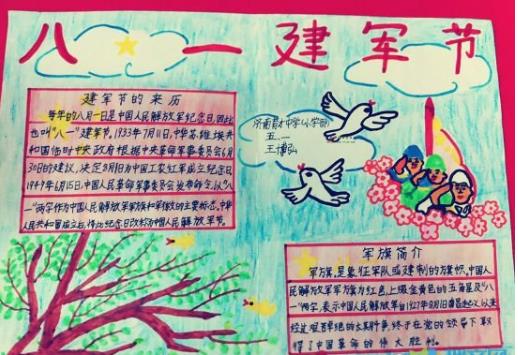 八一建军节
建军节的来历
每年的八月一日是中国人民解放军纪念日,因此
也叫“八一”建军节。1933年7月11日,中华苏维埃共
和国临时中央政府根据中央革命军事委员会6月
30日的建议,决定8月1日为中国工农红军成立纪念日。
1949年6月15日,中国人民革命军事委员会发布命令,以“八
一”两字作为中国人民解放军军旗和军徽的主要标志。中华
人民共和国成立后,将此纪念日改称为中国人民解放军建军节。
济南育才中学(小学部)
五.一
王博弘
军旗简介
军旗,是象征军队或建制的旗帜。中国人
民解放军军旗为红色,上缀金黄色的五角星及“八
一”两字,表示中国人民解放军自1927年8月1日南昌起义以来
经过艰苦卓绝的 终于在党的领导下取
得了中国革命的伟大胜利。